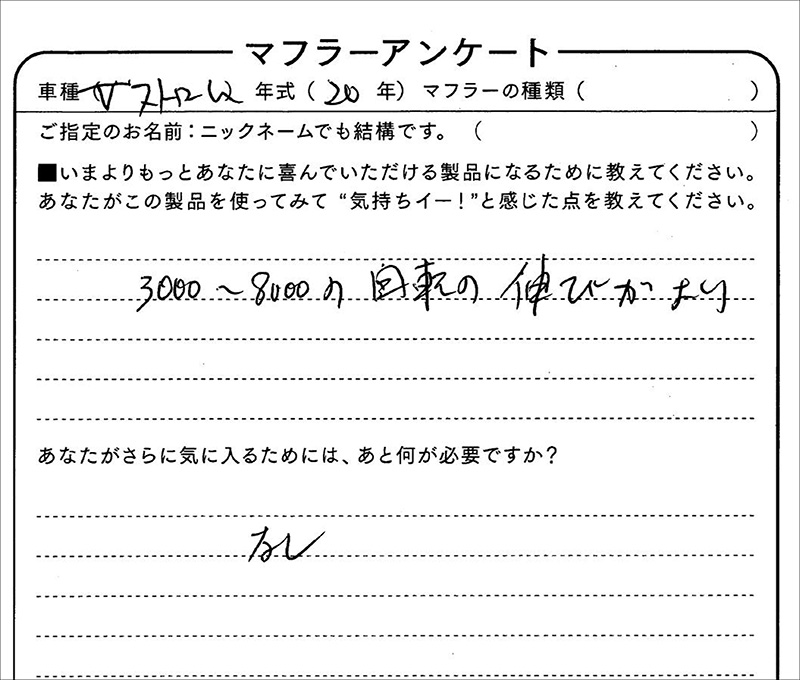 マフラーアンケート
車種 ザストロレス 年式（20年）マフラーの種類（　　　）
ご指定のお名前：ニックネームでも結構です。（　　　）
■いまよりもっとあなたに喜んでいただける製品になるために教えてください。
あなたがこの製品を使ってみて“気持ちイー！”と感じた点を教えてください。
3000～8000の回転の伸びがよい
あなたがさらに気に入るためには、あと何が必要ですか？
なし